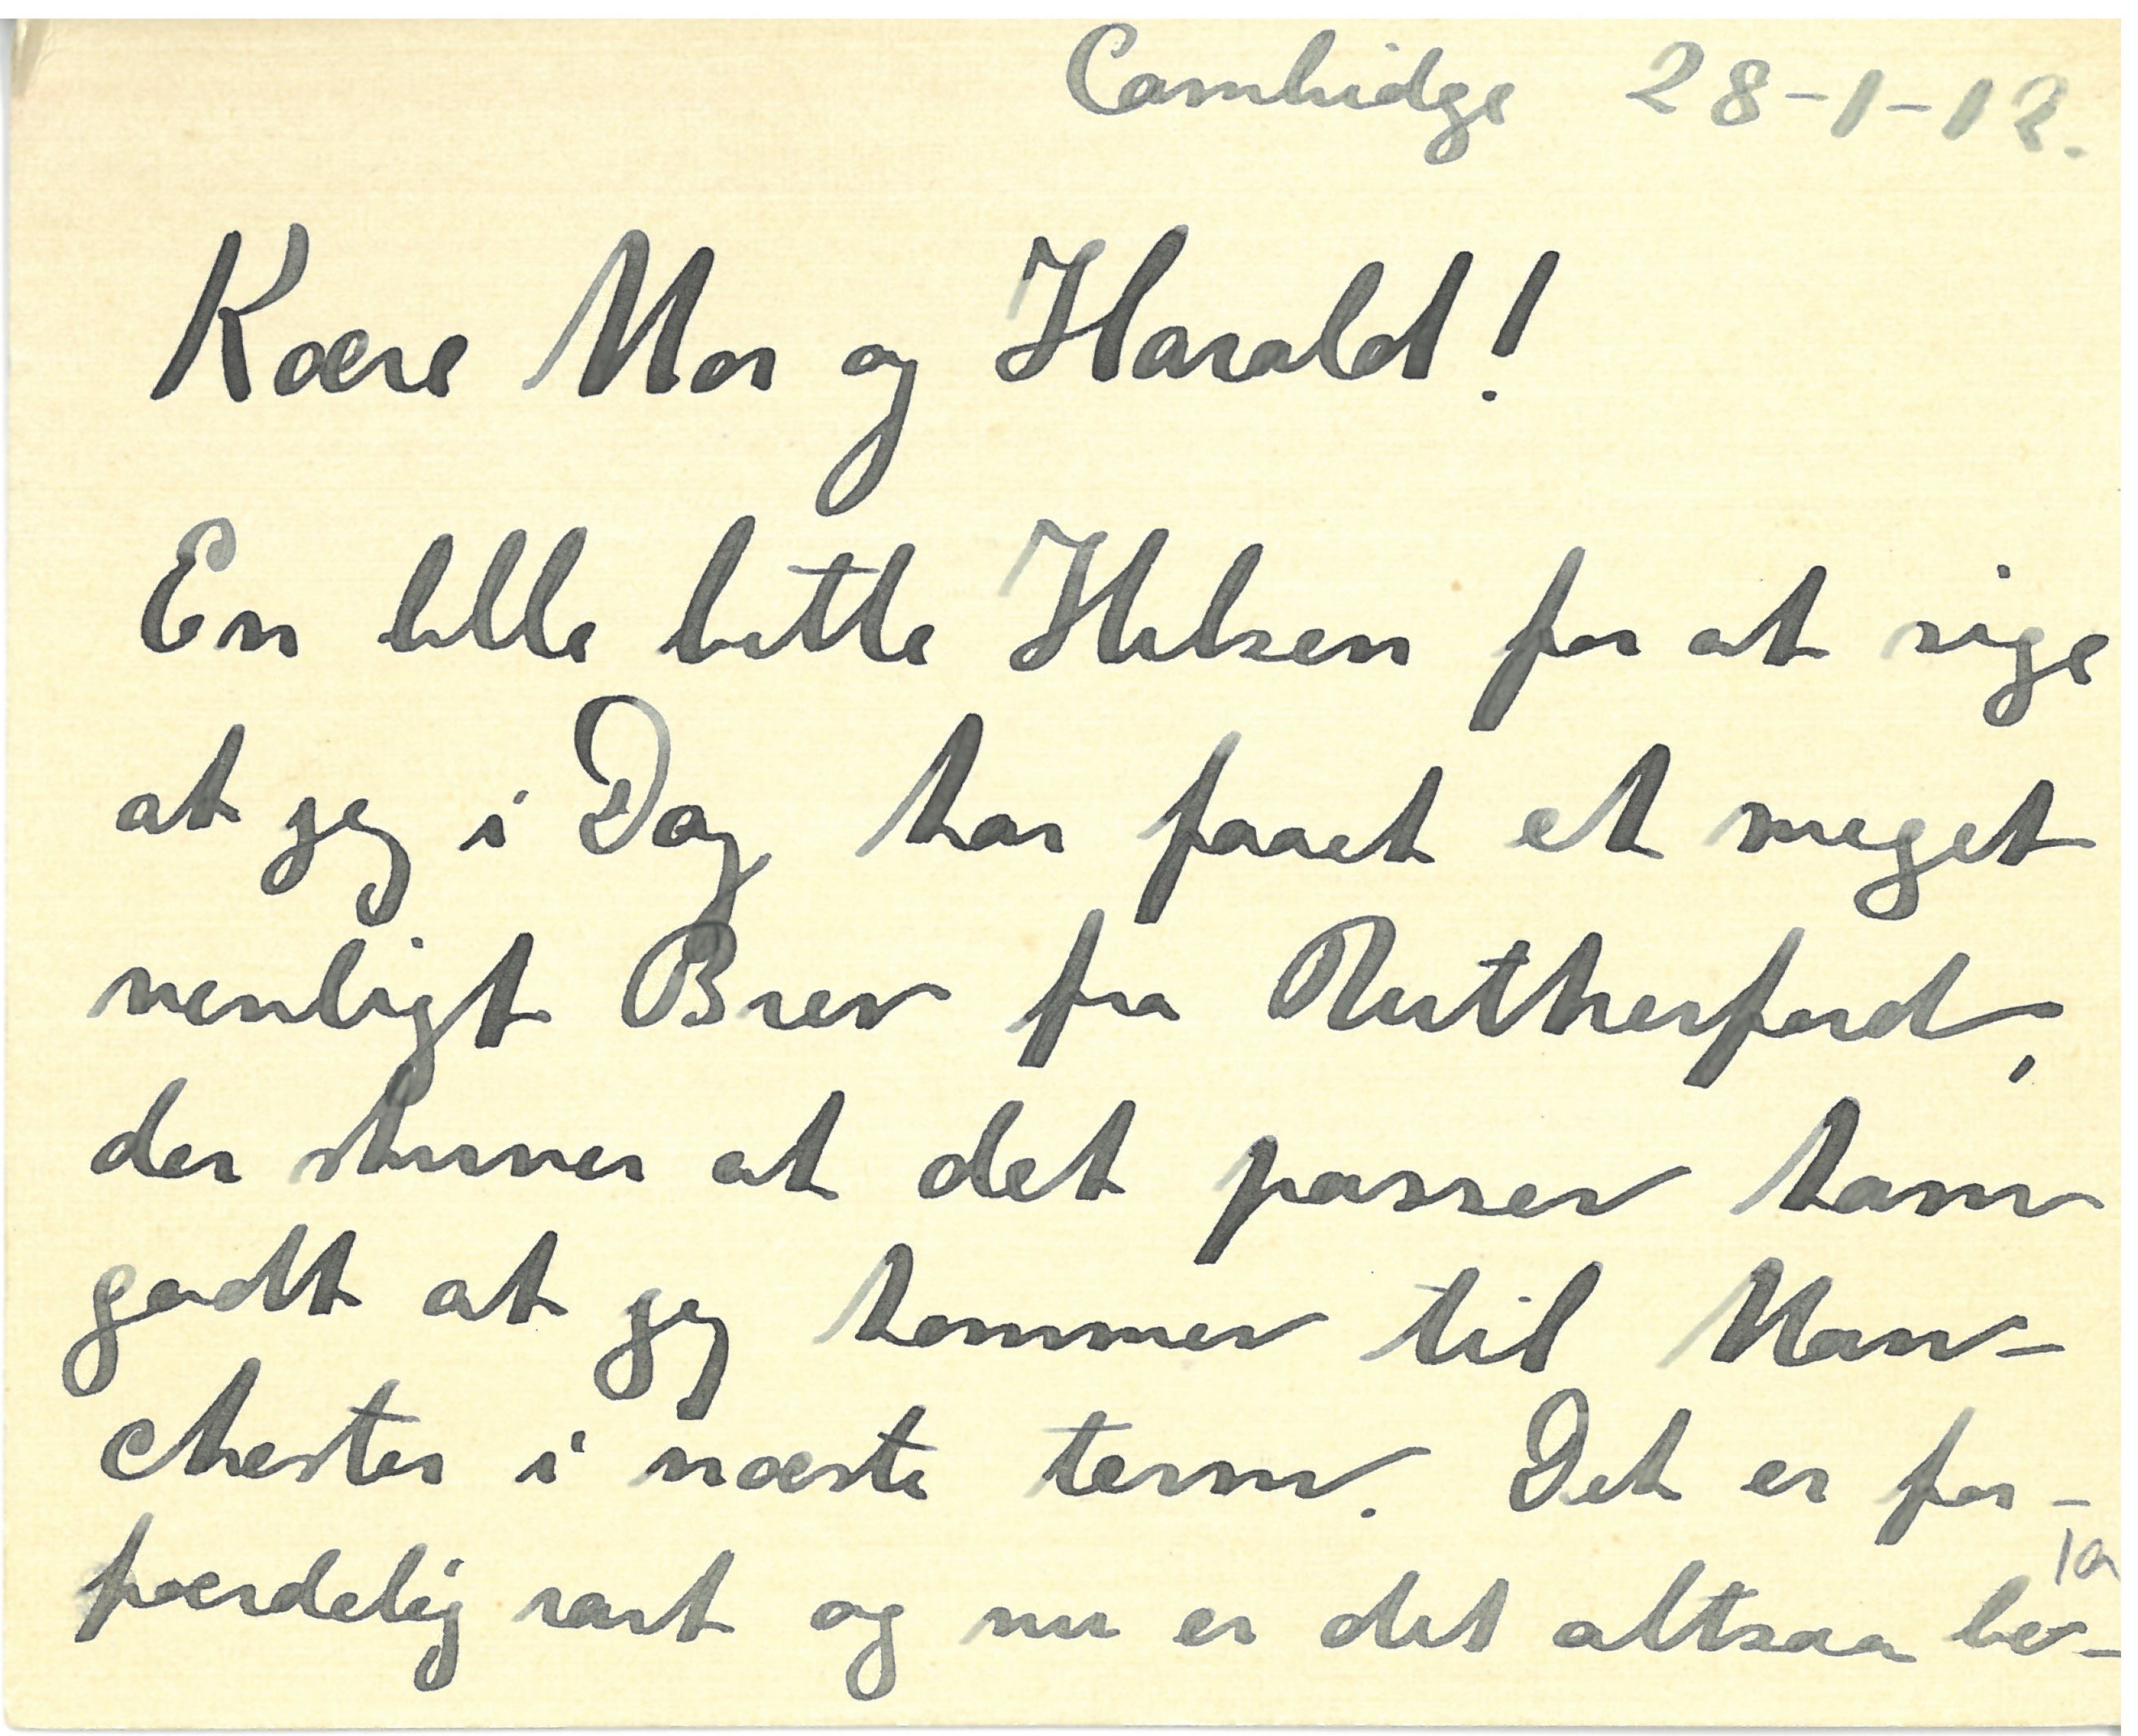 Cambridge 28-1-12.
Kære Mor og Harald!
En lille bitte Hilsen for at sige
at jeg i Dag har faaet et meget
venligt Brev fra Rutherford,
der skriver at det passer ham
godt at jeg kommer til Man-
chester i næste term. Det er for-
færdelig rart og nu er det altsaa be-